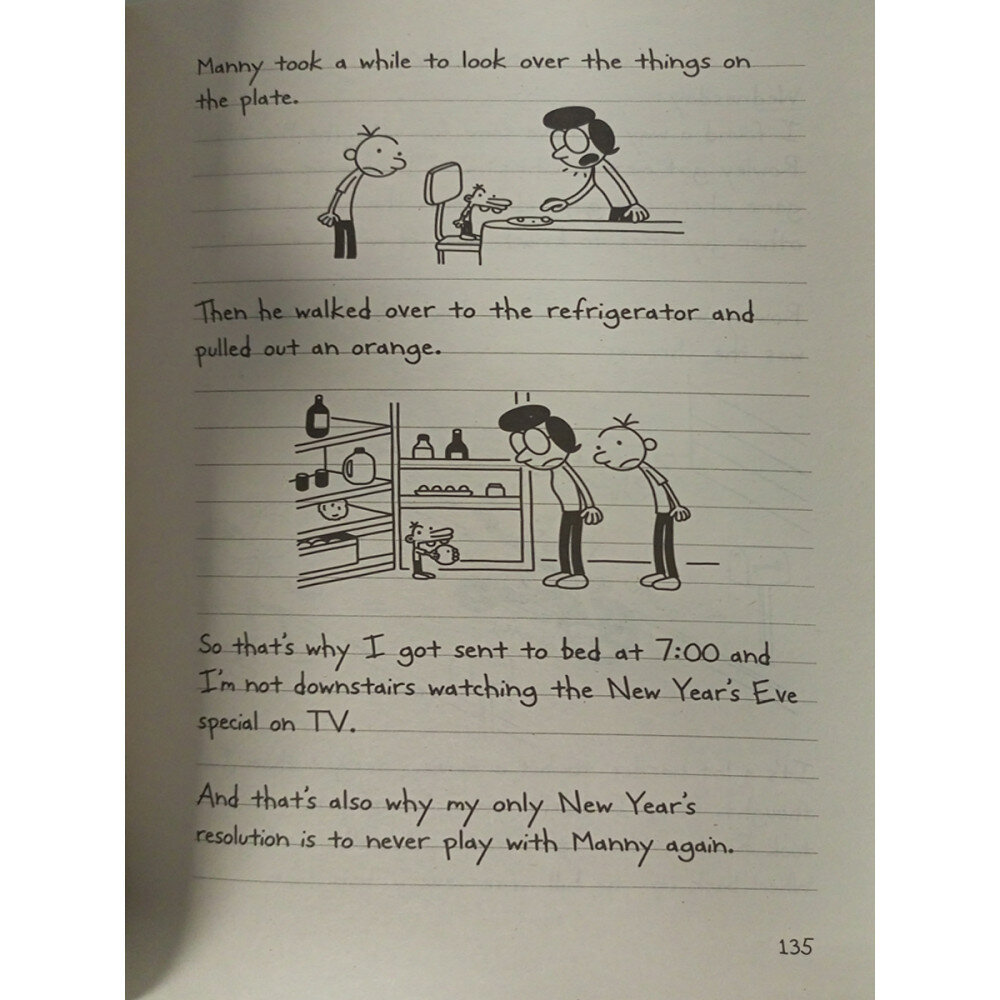 Manny took a while to look over the things on
the plate.
Then he walked over to the refrigerator and
pulled out an orange.
So that's why I got sent to bed at 7:00 and
I'm not downstairs watching the New Year's Eve
special on TV.
And that's also why my only New Year's
resolution is to never play with Manny again.
135